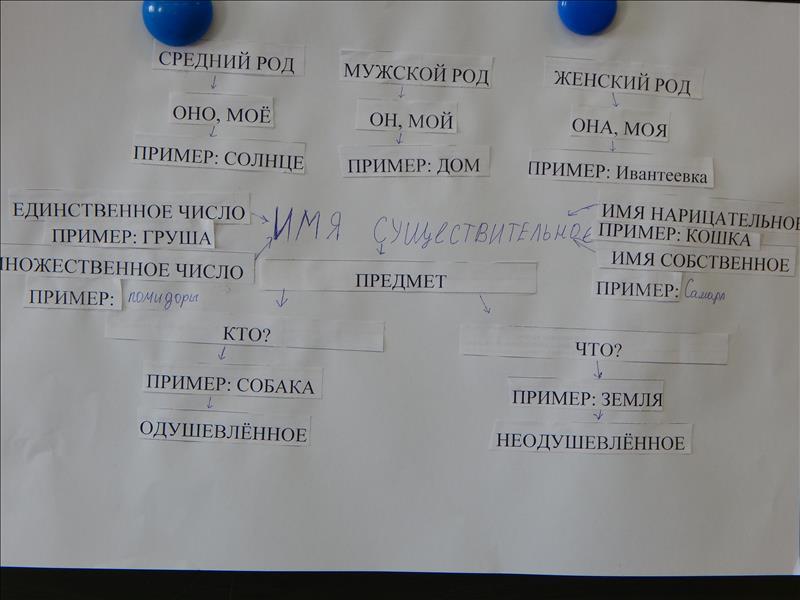 СРЕДНИЙ РОД
МУЖСКОЙ РОД
ЖЕНСКИЙ РОД
ОНО, МОЁ
ОН, МОЙ
ОНА, МОЯ
ПРИМЕР: СОЛНЦЕ
ПРИМЕР: ДОМ
ПРИМЕР: Ивантеевка
ЕДИНСТВЕННОЕ ЧИСЛО
ПРИМЕР: ГРУША
ИМЯ СУЩЕСТВИТЕЛЬНОЕ
ИМЯ НАРИЦАТЕЛЬНОЕ
ПРИМЕР: КОШКА
НОЖЕСТВЕННОЕ ЧИСЛО
ПРИМЕР: помидоры
ПРЕДМЕТ
ИМЯ СОБСТВЕННОЕ
ПРИМЕР:
КТО?
ЧТО?
ПРИМЕР: СОБАКА
ПРИМЕР: ЗЕМЛЯ
ОДУШЕВЛЁННОЕ
НЕОДУШЕВЛЁННОЕ